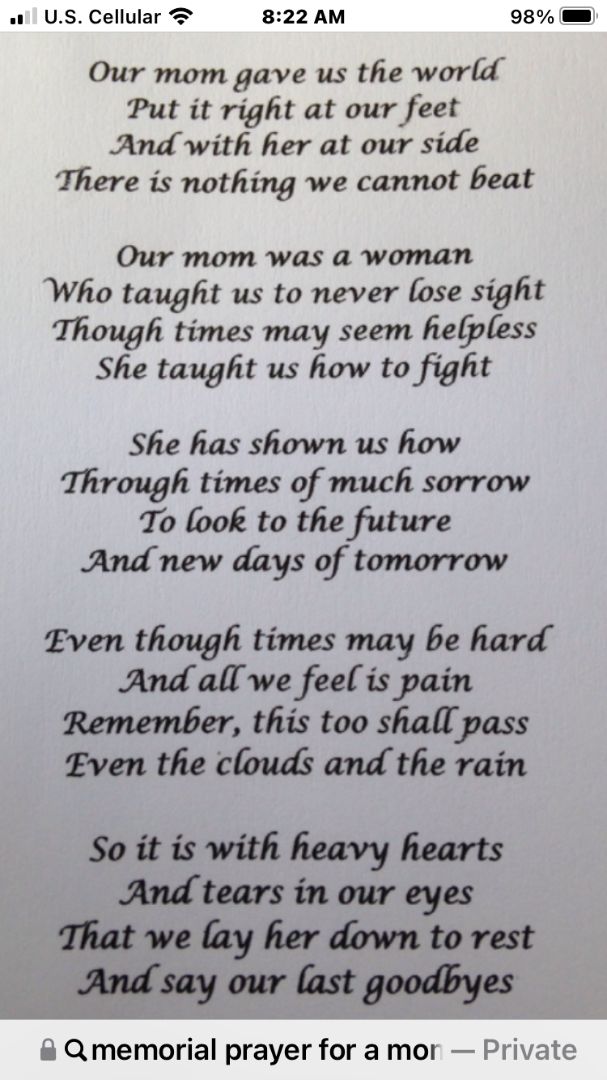 U.S. Cellular 8:22 AM 98%
Our mom gave us the world
Put it right at our feet
And with her at our side
There is nothing we cannot beat
Our mom was a woman
Who taught us to never lose sight
Though times may seem helpless
She taught us how to fight
She has shown us how
Through times of much sorrow
To look to the future
And new days of tomorrow
Even though times may be hard
And all we feel is pain
Remember, this too shall pass
Even the clouds and the rain
So it is with heavy hearts
And tears in our eyes
That we lay her down to rest
And say our last goodbyes
memorial prayer for a mom — Private